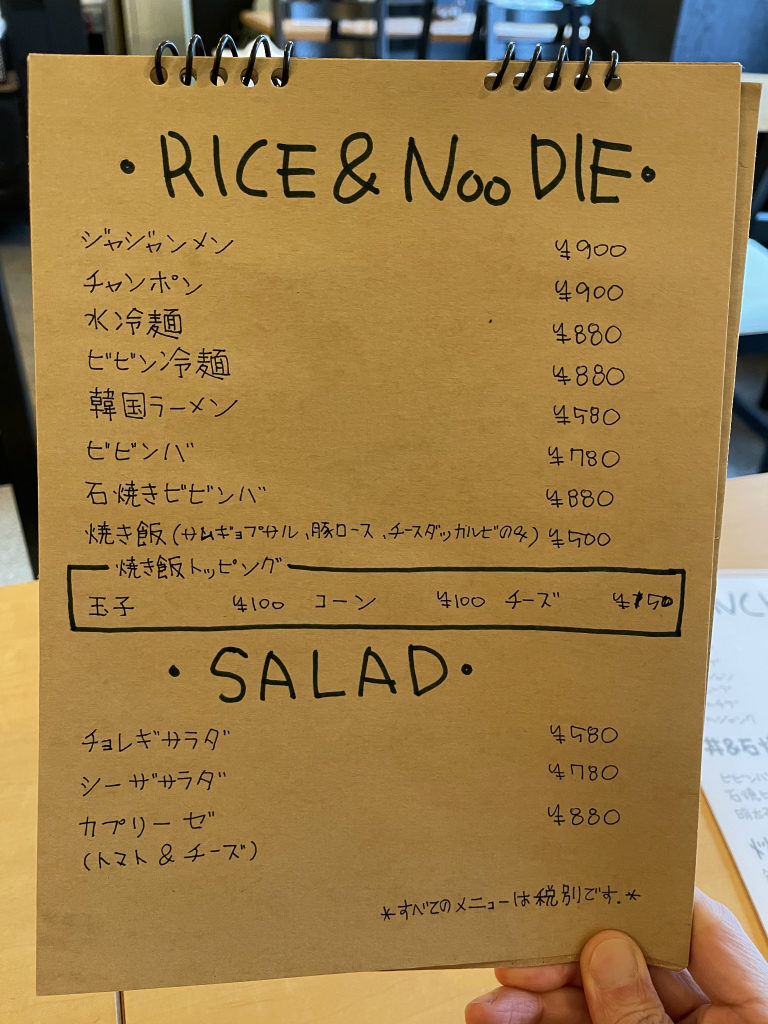 ・RICE & NooDlE・
ジャジャンメン ¥900
チャンポン ¥900
水冷麺 ¥880
ビビン冷麺 ¥880
韓国ラーメン ¥580
ビビンバ ¥780
石焼きビビンバ ¥880
焼き飯(サムギョプサル、豚ロース、チーズダッカルビのみ) ¥500
焼き飯トッピング
玉子 ¥100 コーン ¥100 チーズ ¥150
・SALAD・
チョレギサラダ ¥580
シーザサラダ ¥780
カプリーゼ ¥880
(トマト & チーズ)
*すべてのメニューは税別です.*